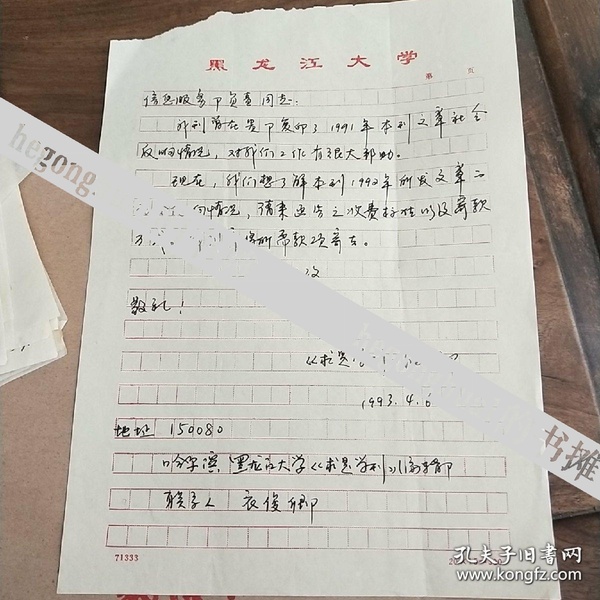 黑龙江大学
第 页
信息服务部负责同志:
我刊曾在贵部复印了1991年本刊文章社会
反响情况,对我们工作有很大帮助。
现在,我们想了解本刊1992年所发文章
情况,请来函告之收费标准以及寄款
所需款项寄去。
致
敬礼!
《求是
1993.4.6
地址 150080
哈尔滨 黑龙江大学《求是学刊》编辑部
联系人 衣俊卿
71333
hegong.
书摊
孔夫子旧书网
www.kongfz.com